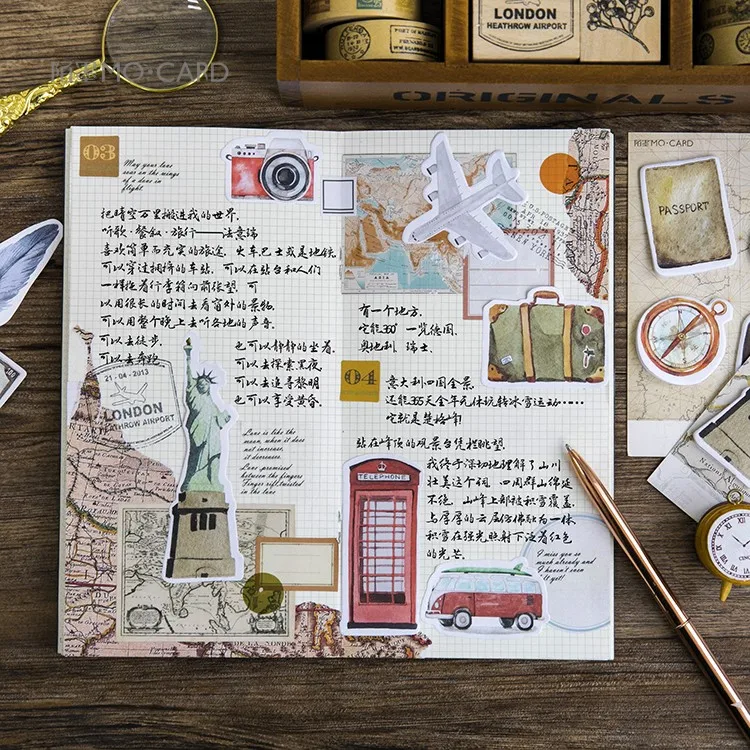 MO·CARD
LONDON
HEATHROW AIRPORT
ORIGINALS
03
May your love
soar on the wings
of a dove in
flight
把晴空万里搬进我的世界.
听歌·餐叙·旅行——法意瑞
喜欢简单而充实的旅途, 火车巴士或是地铁.
可以穿过拥挤的车站, 可以在站台和人们
一样拖着行李箱向前张望, 可
以用很长的时间去看窗外的景物.
可以用整个晚上去听各地的声音.
可以去徒步,
可以去奔跑
也可以静静的坐着.
可以去探索黑夜
可以去追寻黎明
也可以享受黄昏.
21-04-2013
LONDON
HEATHROW AIRPORT
Love is like the
moon, when it does
not increase,
it decreases.
Love promised
between the fingers
Finger rift, twisted
in the love
U.S.POSTAGE
NEW YORK
有一个地方.
它能360° 一览德国.
奥地利. 瑞士.
04
意大利四国全景.
还能365天全年无休玩转冰雪运动……
它就是楚格峰!
站在峰顶的观景台凭栏眺望.
我终于深切地理解了山川
壮美这个词. 四周群山绵延
不绝, 山峰上部被积雪覆盖.
与厚厚的云层仿佛融为一体.
积雪在强光照射下泛着红色
的光芒.
TELEPHONE
I miss you so
much already and
I haven't even
left yet!
MO·CARD
PASSPORT